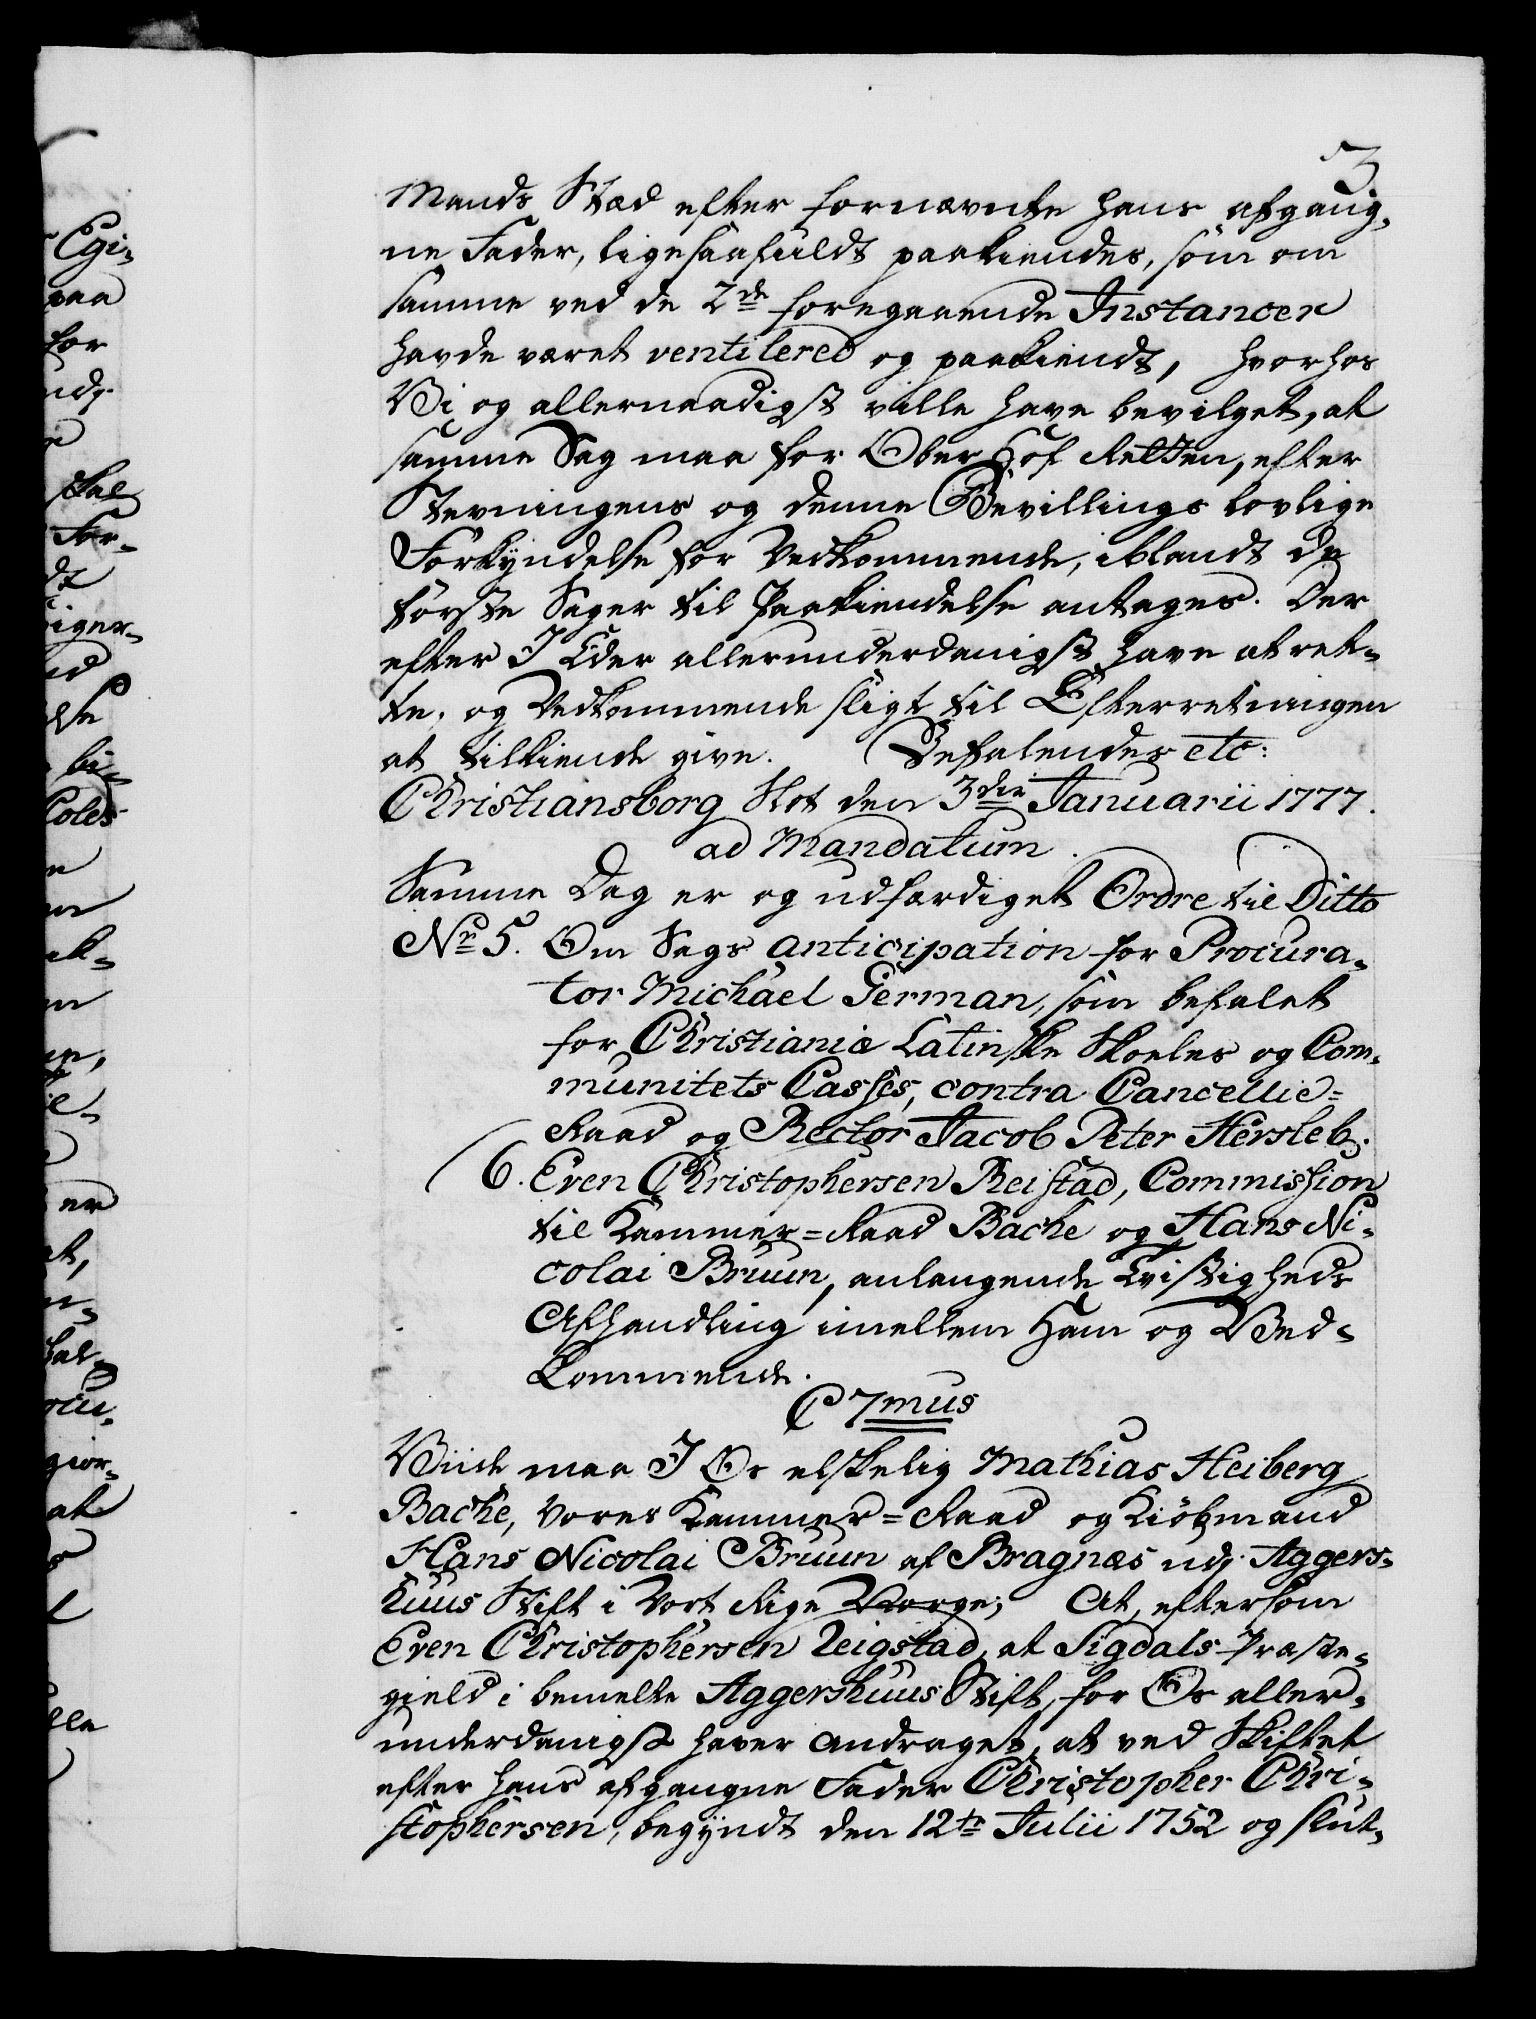 3
Mands Stæd efter fornævnte hans afgang,
ne Fader, ligesaafuldt paakiendes, som om
samme ved de 2de foregaaende Instancer
havde været ventilered og paakiendt, hvorhos
Vi og allernaadigst ville have bevilget, at
samme Sag maa for Ober Hof Retten, efter
Stevningens og denne Bevillings lovlige
Forkyndelse for Vedkommende, iblandt de
første Sager til Paakiendelse antages. Der
efter I Eder allerunderdanigst have at ret-
te, og Vedkommende sligt til Efterretningen
at tilkiende give. Befalendes etc:
Christiansborg Slot den 3die Januarii 1777.
ad Mandatum.
Samme Dag er og udfærdiget Ordre til Ditto
No 5. Om Sags anticipation for Procura-
tor Michael German, som befalet
for Christianiæ Latinske Skoeles og Com-
munitets Casses, contra Cancellie=
Raad og Rector Jacob Peter Hersleb.
6. Even Christophersen Reistad, Commission
til Kammer=Raad Bache og Hans Ni-
colai Bruun, anlangende Tvistigheds
Afhandling imellem Ham og Ved-
kommende.
C 7mus
Viide maa I Os elskelig Mathias Heiberg
Bache, Vores Kammer=Raad og Kiöbmand
Hans Nicolai Bruun af Bragnæs udj Aggers-
huus Stift i Vort Rige Norge; At, eftersom
Even Christophersen Reigstad, at Sigdals Præste-
gield i bemelte Aggershuus Stift, for Os aller-
underdanigst haver andraget, at ved Skiftet
efter hans afgangne Fader Christopher Chri-
stophersen, begyndt den 12te Julii 1752 og slut-